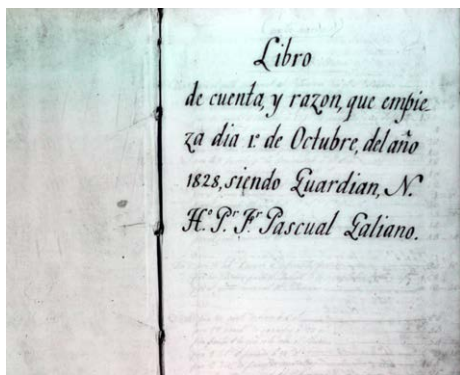 Libro
de cuenta, y razon, que empie
za dia 1.º de Octubre, del año
1828, siendo Guardian, N.
H.º P.r F.r Pascual Galiano.